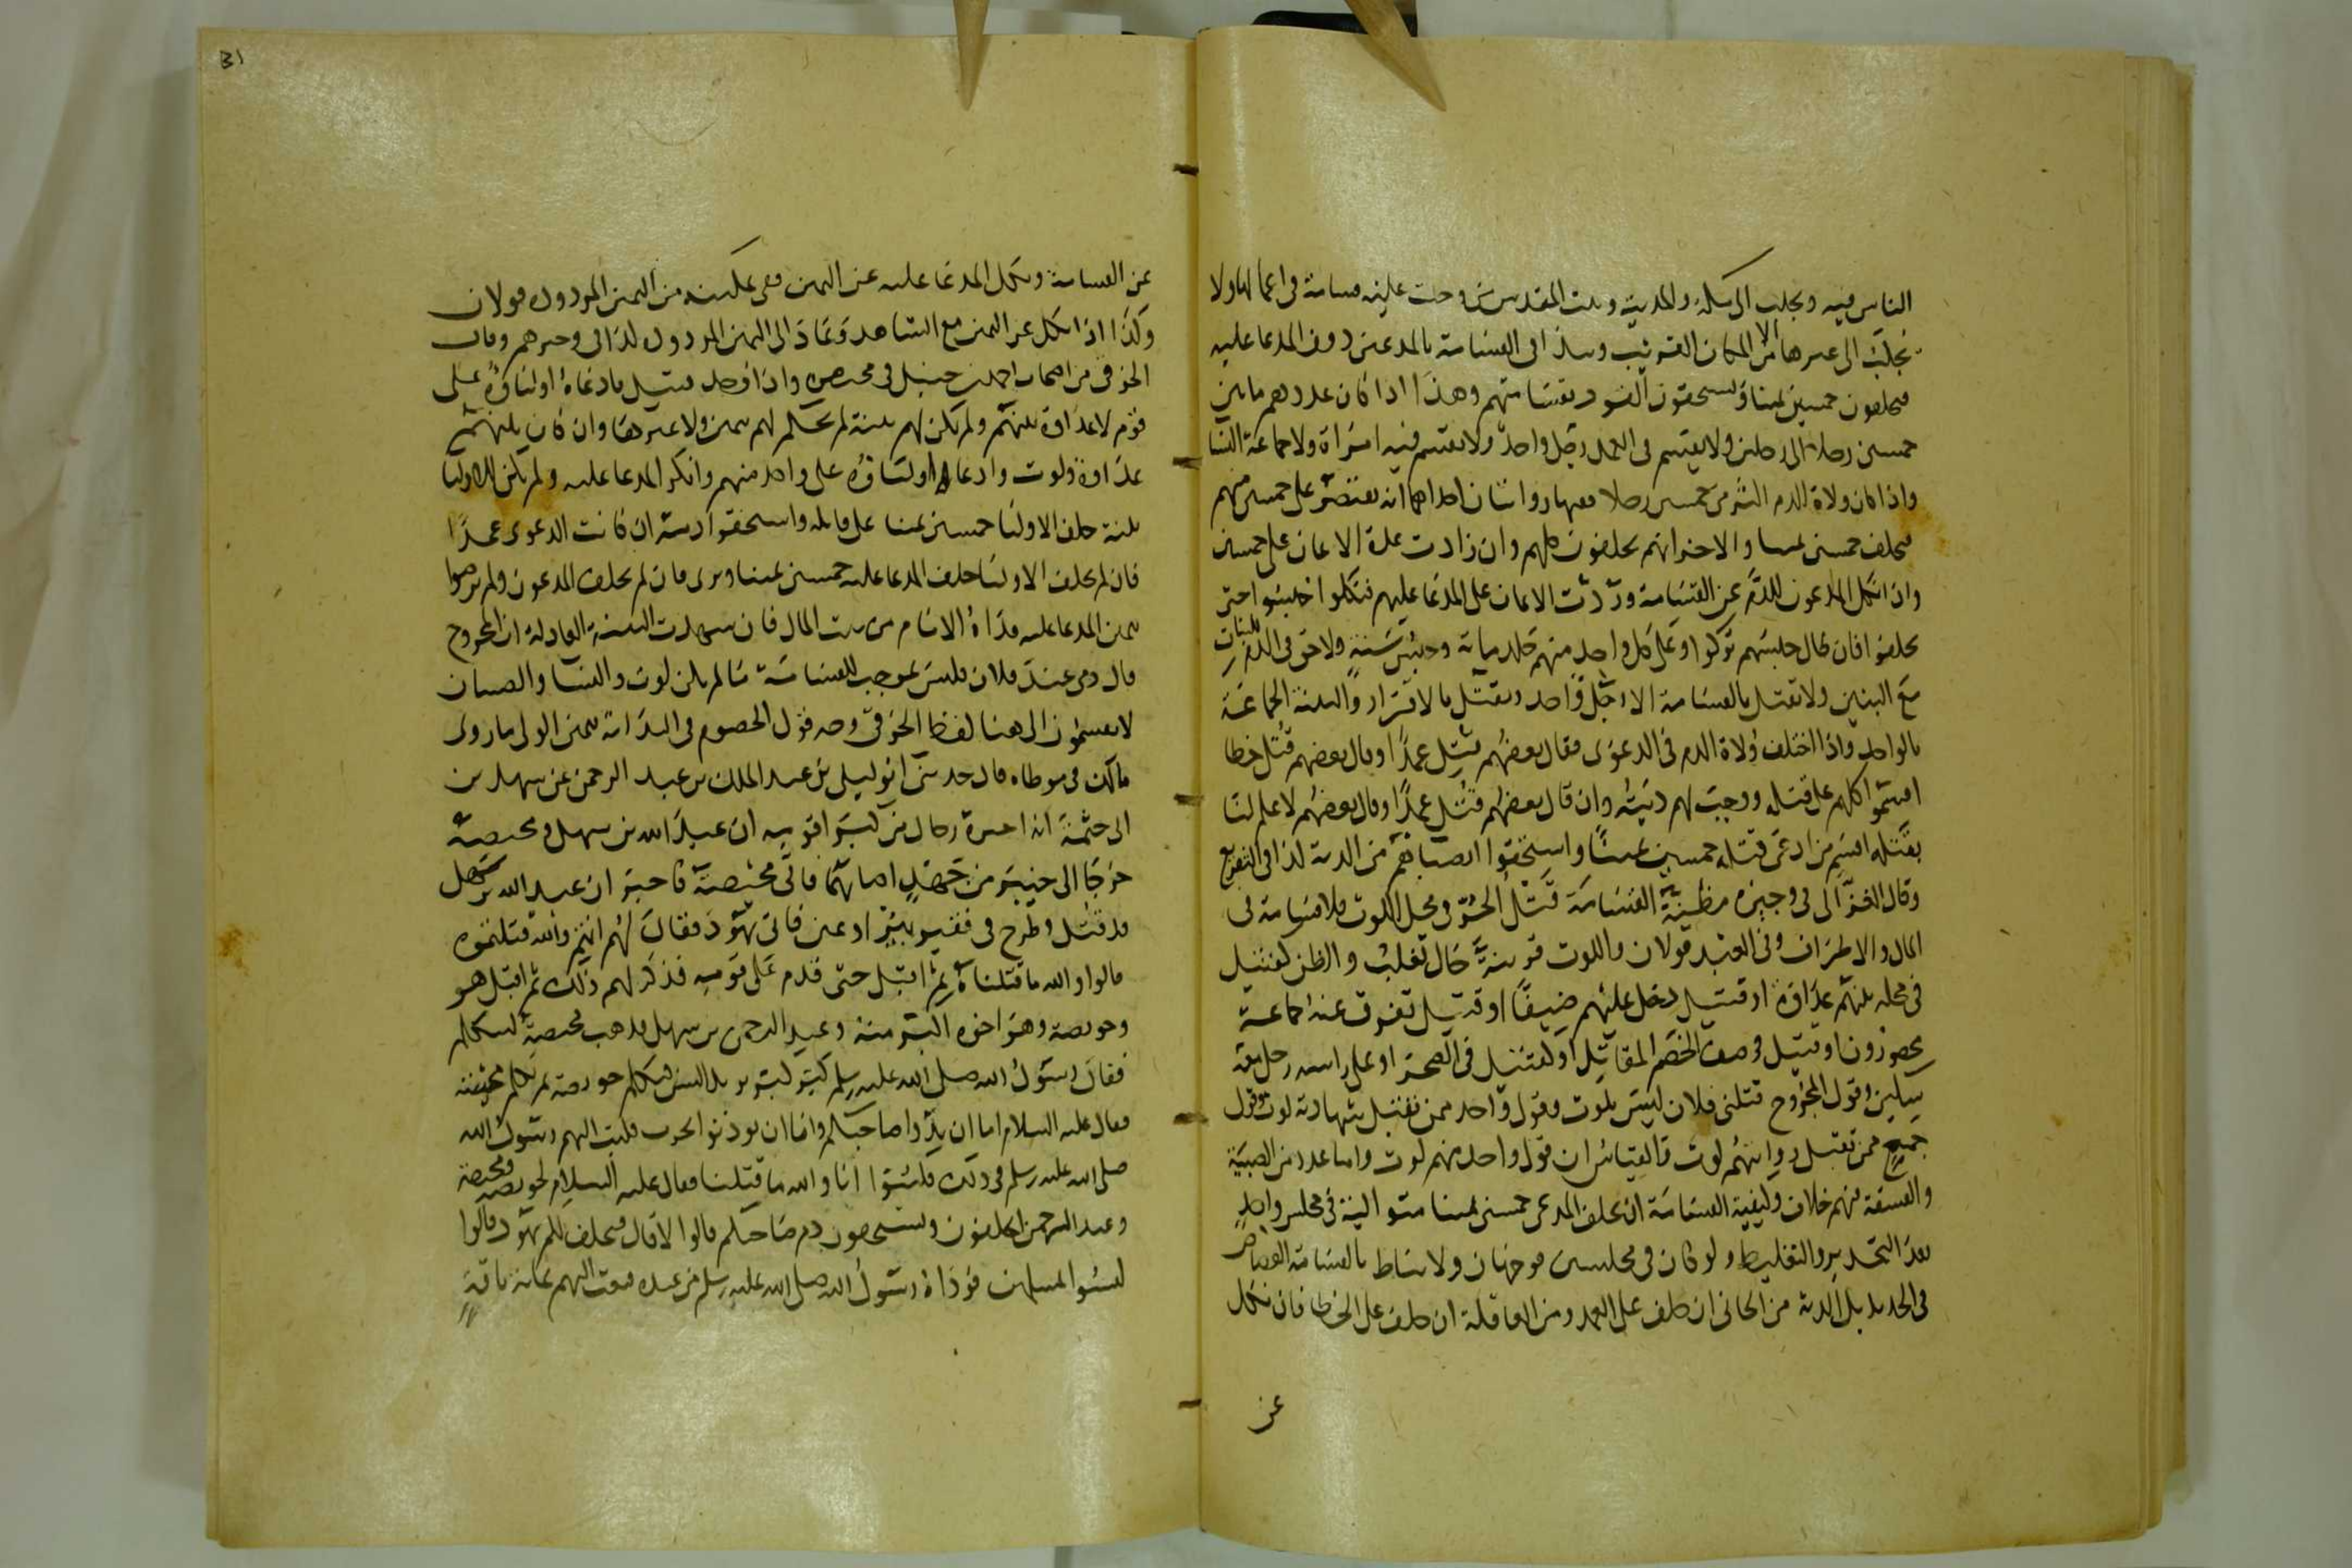 الناس فيه ويجلب الى مكة والمدينة وبيت المقدس من وجبت عليه قسامة في اعمالها ولا
يجلب الى غيرها الا من المكان القريب ويبدا في القسامة بالمدعين دون المدعا عليه
فيحلفون خمسين يمينا ويستحقون القود بقسامتهم وهذا اذا كان عددهم ما بين
خمسين رجلا الى رجلين ولا يقسم في العمد رجل واحد ولا يقسم فيه امراة ولا جماعة النسا
واذا كان ولاة الدم اكثر من خمسين رجلا ففيها روايتان احداهما انه يقتصر على خمسين منهم
فيحلف خمسين يمينا والاخرى انهم يحلفون كلهم وان زادت عدة الايمان على خمسين
وان انكل المدعون للدم عن القسامة وردت الايمان على المدعا عليهم فنكلوا حبسوا حتى
يحلفوا فان طال حبسهم تركوا وعلى كل واحد منهم جلد مياية وحبس سنة ولا حق في الدم للبنات
مع البنين ولا تقتل بالقسامة الا رجل واحد ويقتل بالاقرار والبينة الجماعة
بالواحد واذا اختلف ولاة الدم في الدعوى فقال بعضهم قتل عمدا وقال بعضهم قتل خطا
اقسموا كلهم على قتله ووجبت لهم ديته وان قال بعضهم قتل عمدا وقال بعضهم لا علم لنا
بقتله اقسم من ادعى قتله خمسين يمينا واستحقوا انصباهم من الدية كذا في التفريع
وقال الغزالي في وجيزه مظنة القسامة قتل الحر في محل اللوث فلا قسامة في
المال والاطراف وفي العبد قولان واللوث قرينة حال تغلب والظن كقتيل
في محلة بينهم عداوة او قتيل دخل عليهم ضيفا او قتيل تفرق عنه جماعة
محصورون او قتيل في صف الخصم المقاتل او كقتيل في الصحرا وعلى راسه رجل معه
سكين وقول المجروح قتلني فلان ليس بلوث وقول واحد ممن تقبل شهادته لوث وقول
جميع ممن تقبل روايتهم لوث والقياس ان قول واحد منهم لوث واما عدد من الصبية
والفسقة منهم خلاف وكيفية القسامة ان يحلف المدعى خمسين يمينا متوالية في مجلس واحد
بعد التحذير والتغليظ ولو كان في مجلسين فوجهان ولا يناط بالقسامة القصاص
في الجديد بل الدية من الجاني ان حلف على العمد ومن العاقلة ان حلف على الخطا فان نكل
عن
31
عن القسامة ونكل المدعا عليه عن اليمين ففي تمكينه من اليمين المردودة قولان
وكذا اذا نكل عن اليمين مع الشاهد وعاد الى اليمين المردودة كذا في وجيزهم وقال
الخرقي من اصحاب احمد بن حنبل في مختصره واذا وجد قتيل فادعاه اولياؤه على
قوم لا عداوة بينهم ولم يكن لهم بينة لم يحكم لهم بيمين ولا غيرها وان كان بينهم
عداوة ولوث وادعا اولياؤه على واحد منهم وانكر المدعا عليه ولم يكن للاوليا
بينة حلف الاوليا خمسين يمينا على قاتله واستحقوا دمه ان كانت الدعوى عمدا
فان لم يحلف الاوليا حلف المدعا عليه خمسين يمينا وبرى فان لم يحلف المدعون ولم يرضوا
بيمين المدعا عليه فداه الامام من بيت المال فان شهدت البينة العادلة ان المجروح
قال دمي عند فلان فليس بموجب للقسامة ما لم يكن لوث والنسا والصبيان
لا يقسمون الى هنا لفظ الخرقي وجه قول الخصوم في البداية بيمين الولي ما روى
مالك في موطاه قال حدثني ابو ليلى بن عبد الملك بن عبد الرحمن عن سهل بن
ابي حثمة انه اخبره رجال من كبرا قومه ان عبد الله بن سهل ومحيصة
خرجا الى خيبر من جهد اصابهم فاتى محيصة فاخبر ان عبد الله بن سهل
قد قتل وطرح في فقير بير او عين فاتى يهود فقال لهم انتم والله قتلتموه
قالوا والله ما قتلناه ثم اقبل حتى قدم على قومه فذكر لهم ذلك ثم اقبل هو
وحويصة وهو اخوه اكبر منه وعبد الرحمن بن سهل فذهب محيصة ليتكلم
فقال رسول الله صلى الله عليه وسلم كبر كبر يريد السن فتكلم حويصة ثم تكلم محيصة
فقال عليه السلام اما ان يدوا صاحبكم واما ان يوذنوا بحرب فكتب اليهم رسول الله
صلى الله عليه وسلم في ذلك فكتبوا انا والله ما قتلنا فقال عليه السلام لحويصة ومحيصة
وعبد الرحمن اتحلفون وتستحقون دم صاحبكم قالوا لا قال فيحلف لكم يهود قالوا
ليسوا بمسلمين فوداه رسول الله صلى الله عليه وسلم من عنده فبعث اليهم بماية ناقة